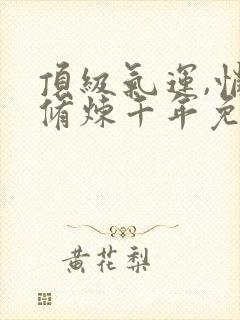 頂級氣運,悄
脩煉千年
黃花梨